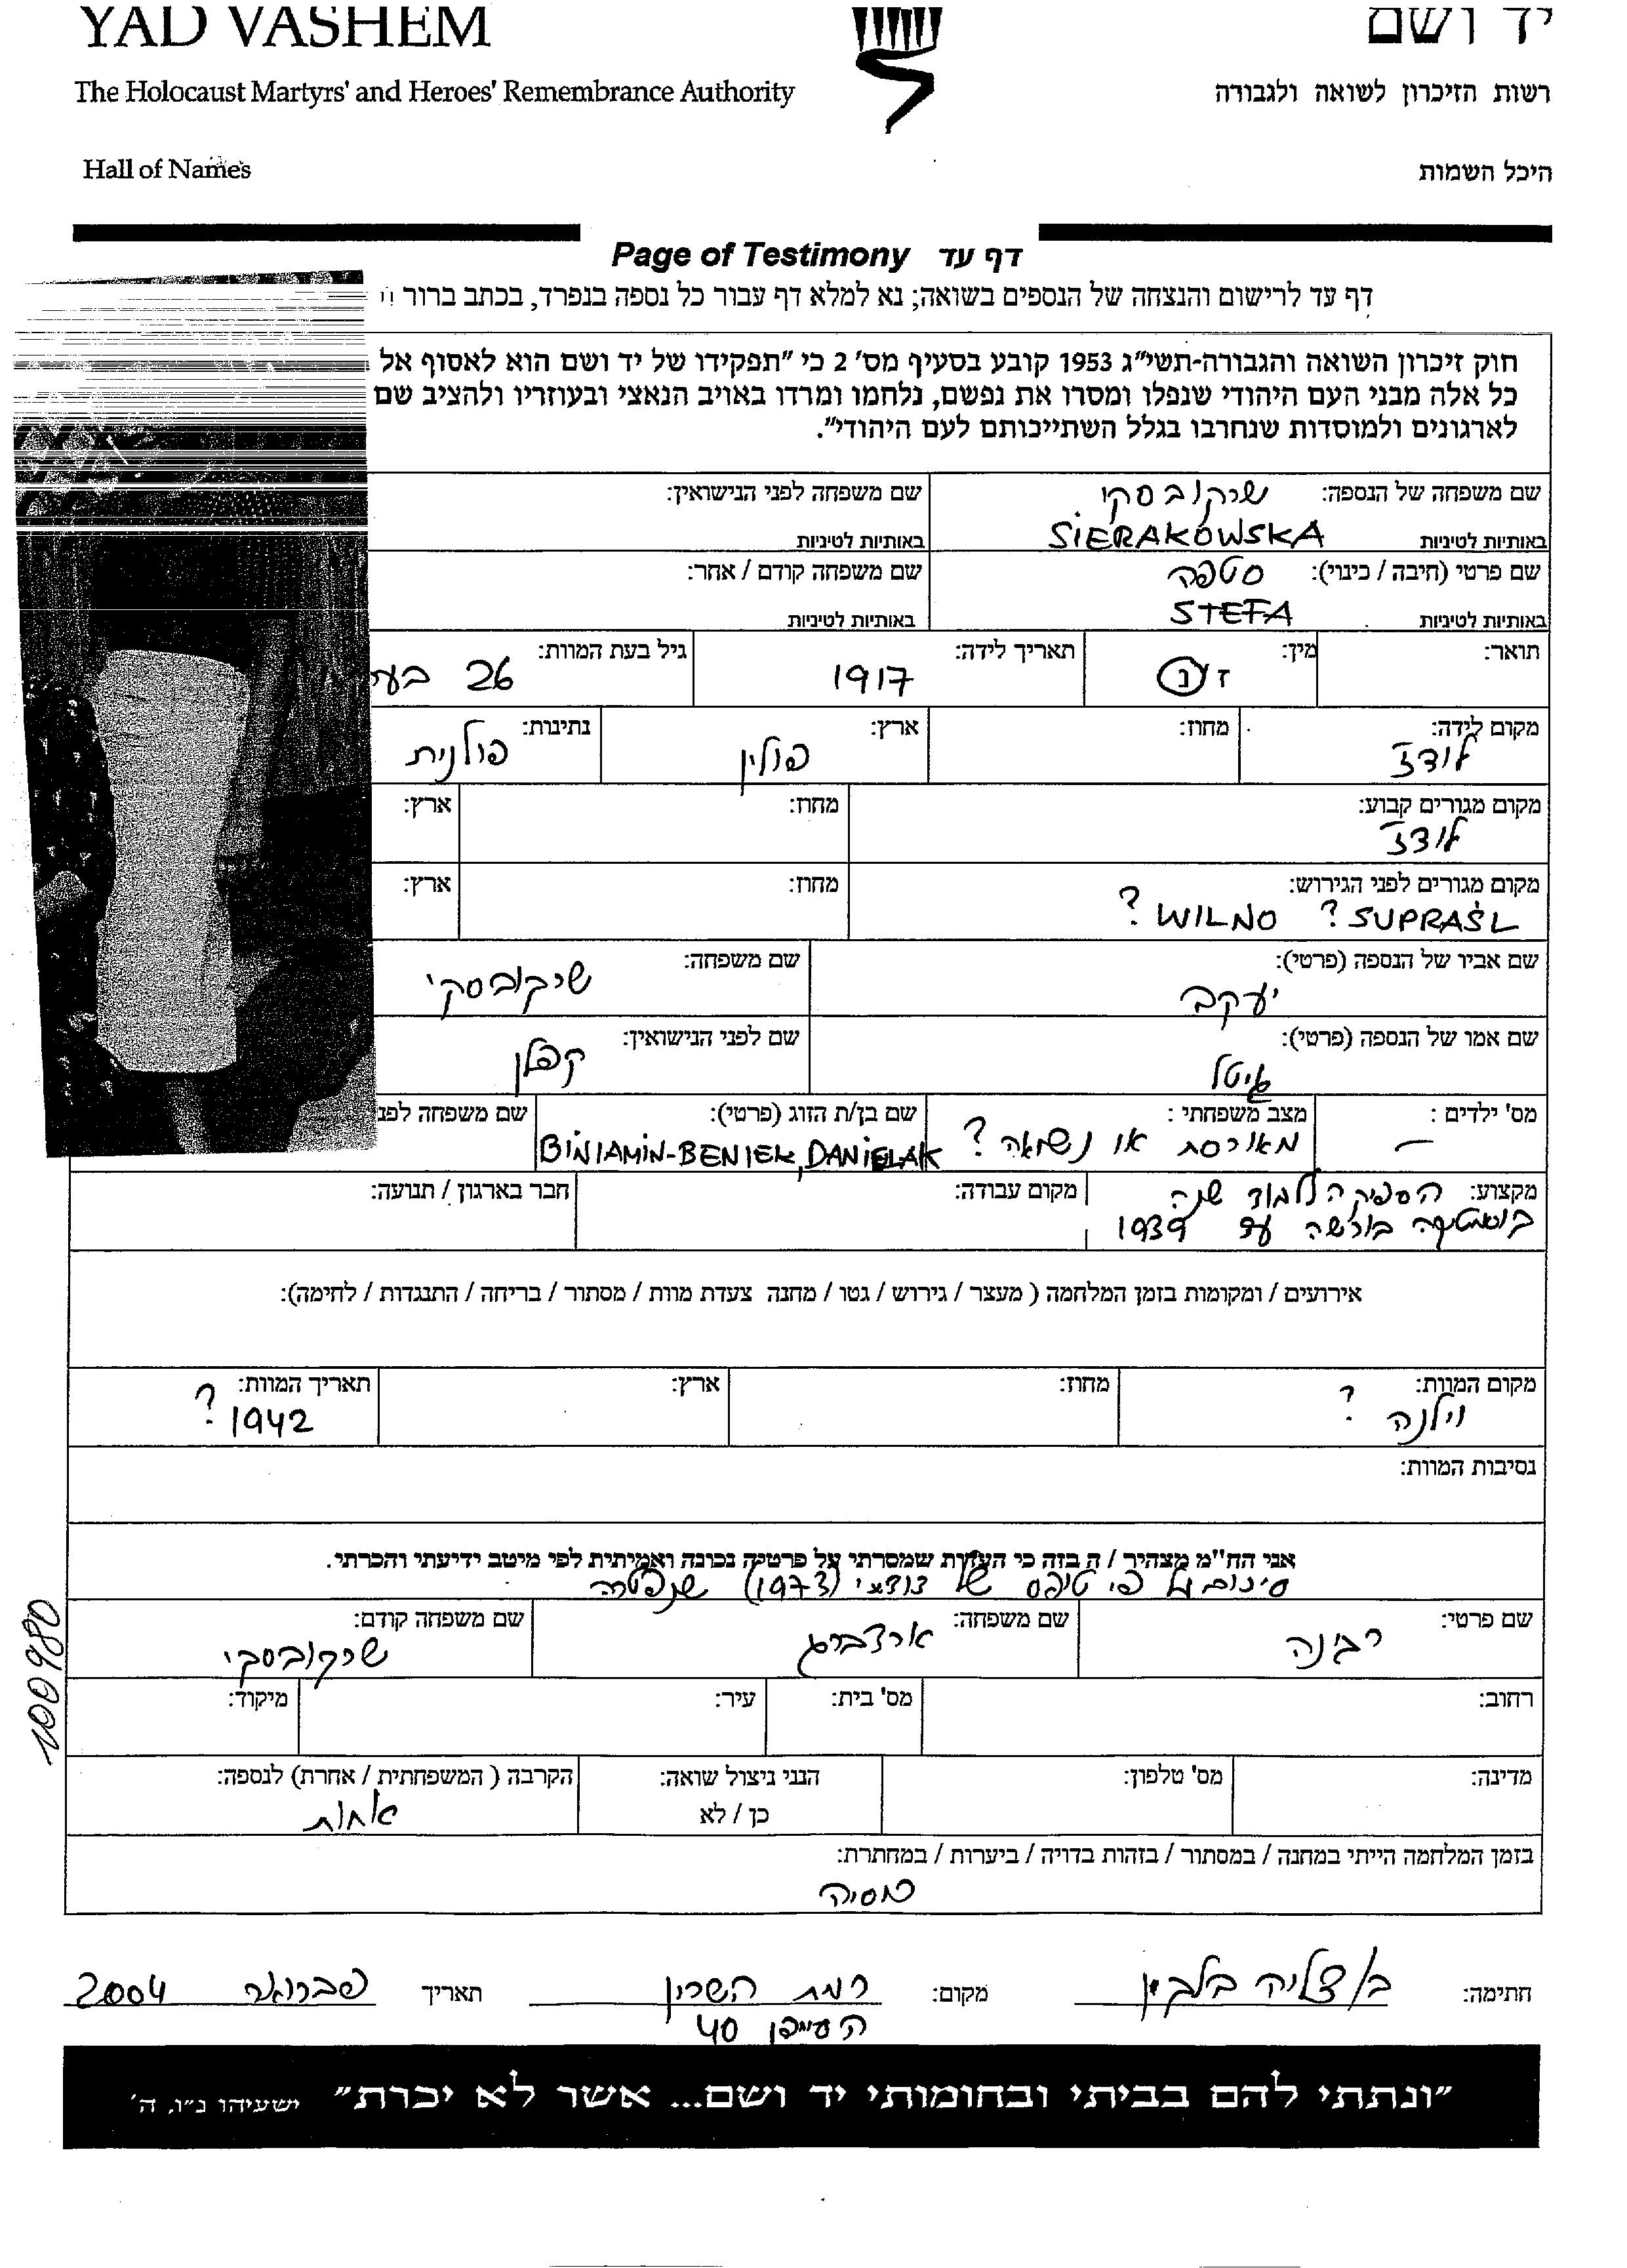 YAD VASHEM
יד ושם
The Holocaust Martyrs' and Heroes' Remembrance Authority
רשות הזיכרון לשואה ולגבורה
Hall of Names
היכל השמות
Page of Testimony דף עד
דף עד לרישום והנצחה של הנספים בשואה; נא למלא דף עבור כל נספה בנפרד, בכתב ברור
חוק זיכרון השואה והגבורה-תשי"ג 1953 קובע בסעיף מס' 2 כי "תפקידו של יד ושם הוא לאסוף אל
כל אלה מבני העם היהודי שנפלו ומסרו את נפשם, נלחמו ומרדו באויב הנאצי ובעוזריו ולהציב שם
לארגונים ולמוסדות שנחרבו בגלל השתייכותם לעם היהודי".
שם משפחה של הנספה: שרקובסקי שם משפחה לפני הנישואין:
באותיות לטיניות SIERAKOWSKA באותיות לטיניות
שם פרטי (חיבה / כינוי): סטפה שם משפחה קודם / אחר:
באותיות לטיניות STEFA באותיות לטיניות
תואר: מין: ז / נ תאריך לידה: 1917 גיל בעת המוות: 26
מקום לידה: מחוז: ארץ: נתינות:
לודז' פולין פולנית
מקום מגורים קבוע: מחוז: ארץ:
לודז'
מקום מגורים לפני הגירוש: מחוז: ארץ:
SUPRAŚL ? WILNO ?
שם אביו של הנספה (פרטי): יעקב שם משפחה: שרקובסקי
שם אמו של הנספה (פרטי): איטל שם לפני הנישואין: קפלן
מס' ילדים: מצב משפחתי: שם בן/ת הזוג (פרטי): שם משפחה לפנ
— מאורסת או נשואה? BINIAMIN-BENIEK, DANIELAK
מקצוע: הספיקה ללמוד שנה מקום עבודה: חבר בארגון / תנועה:
בורשה עד 1939
אירועים / ומקומות בזמן המלחמה ( מעצר / גירוש / גטו / מחנה צעדת מוות / מסתור / בריחה / התנגדות / לחימה):
מקום המוות: מחוז: ארץ: תאריך המוות:
וילנה ? 1942 ?
נסיבות המוות:
אני הח"מ מצהיר / ה בזה כי העדות שמסרתי על פרטיה נכונה ואמיתית לפי מיטב ידיעתי והכרתי.
על פי טופס של (1973) שנפטרה
שם פרטי: רגינה שם משפחה: ארצברג שם משפחה קודם: שרקובסקי
רחוב: מס' בית: עיר: מיקוד:
מדינה: מס' טלפון: הנני ניצול שואה: הקרבה ( המשפחתית / אחרת) לנספה:
כן / לא אחות
בזמן המלחמה הייתי במחנה / במסתור / בזהות בדויה / ביערות / במחתרת:
רוסיה
חתימה: ב/ צליה בלבין מקום: רמת השרון תאריך פברואר 2004
40
"ונתתי להם בביתי ובחומותי יד ושם... אשר לא יכרת" ישעיהו נ"ו, ה'
100980